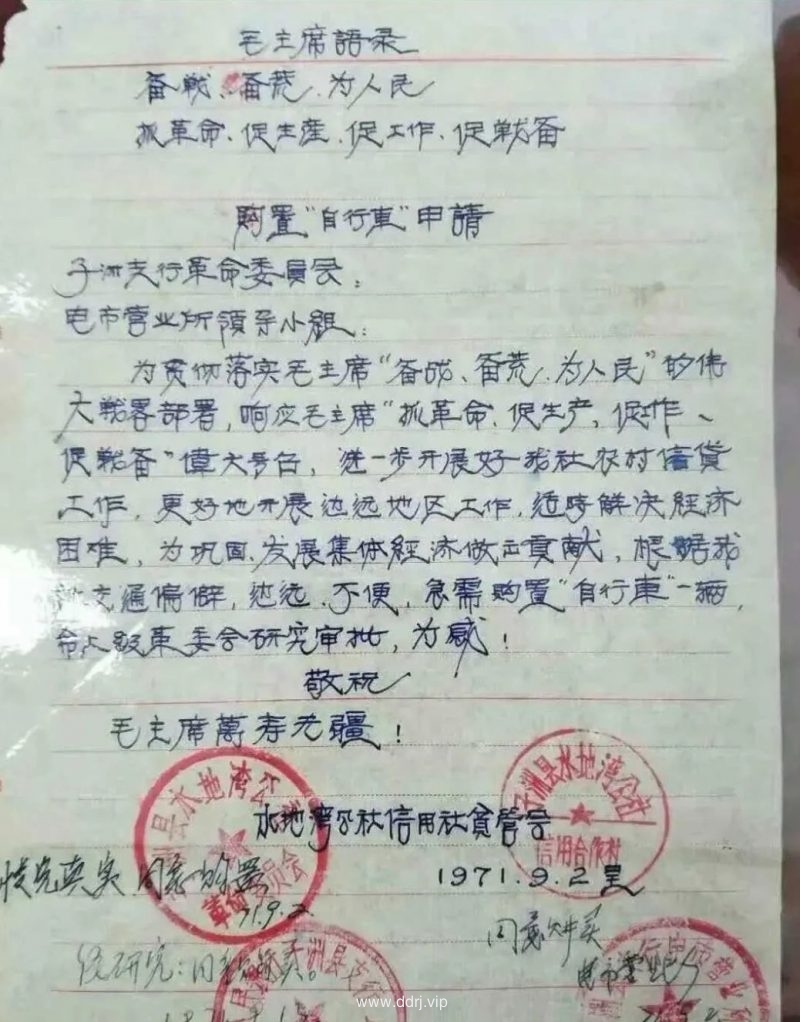 毛主席語录
备战、备荒、为人民
抓革命、促生産、促工作、促戦备
购置"自行車"申請
子洲支行革命委員会：
电市营业所領导小組：
为贯彻落实毛主席"备战、备荒、为人民"的伟
大戦略部署，响应毛主席"抓革命、促生产，促作、
促戦备"偉大号召，进一步开展好我社农村信貸
工作，更好地开展边远地区工作，适時解决經济
困难，为巩固、发展集体經济做出貢献，根据我
交通偏僻，边远、不便，急需购置"自行車"一辆，
上級革委会研究审批，为感！
敬祝
毛主席萬寿无疆！
洲县水地湾公社
革命委员会
子洲县水地湾公社
信用合作社
水地湾公社信用社貧管会
1971.9.2呈
情况真实 同意购置
71.9.2
经研究：同意购买。
同意购买
电市营业所
洲县支行
www.ddrj.vip